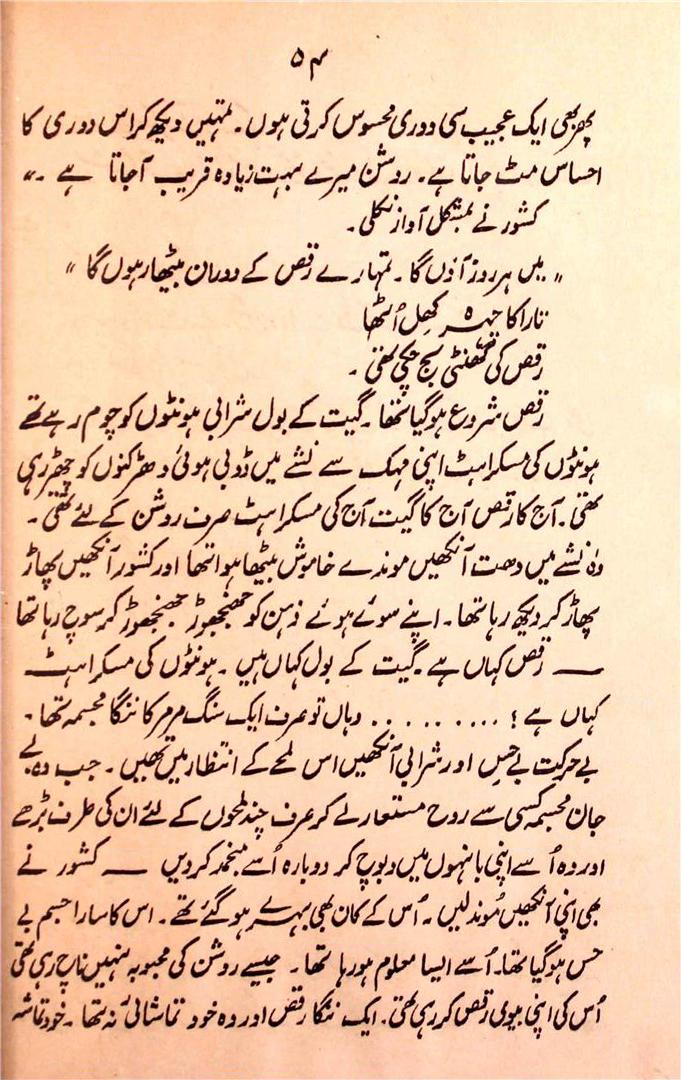 ۵۴
پھر بھی ایک عجیب سی دوری محسوس کرتی ہوں۔ تمہیں دیکھ کر اس دوری کا
احساس مٹ جاتا ہے۔ روشن میرے بہت زیادہ قریب آ جاتا ہے ۔"
کشور نے بمشکل آواز نکلی۔
"میں ہر روز آؤں گا۔ تمہارے رقص کے دوران بیٹھا رہوں گا"
تارا کا چہرہ کھِل اُٹھا
رقص کی گھنٹی بج چکی تھی ۔
رقص شروع ہو گیا تھا ۔ گیت کے بول شرابی ہونٹوں کو چوم رہے تھے
ہونٹوں کی مسکراہٹ اپنی مہک سے نشے میں ڈوبی ہوئی دھڑکنوں کو چھیڑ رہی
تھی۔ آج کا رقص آج کا گیت آج کی مسکراہٹ صرف روشن کے لئے تھی۔
وہ نشے میں دھت آنکھیں موندے خاموش بیٹھا ہوا تھا اور کشور آنکھیں پھاڑ
پھاڑ کر دیکھ رہا تھا۔ اپنے سوئے ہوئے ذہن کو جھنجھوڑ جھنجھوڑ کر سوچ رہا تھا
— رقص کہاں ہے ۔ گیت کے بول کہاں ہیں ۔ ہونٹوں کی مسکراہٹ
کہاں ہے ؟ ......... وہاں تو صرف ایک سنگ مرمر کا ننگا مجسمہ تھا۔
بے حرکت بے حِس اور شرابی آنکھیں اس لمحے کے انتظار میں تھیں ۔ جب وہ بے
جان مجسمہ کسی سے روح مستعار لے کر صرف چند لمحوں کے لئے ان کی طرف بڑھے
اور وہ اُسے اپنی بانہوں میں دبوچ کر دوبارہ اُسے منجمد کر دیں — کشور نے
بھی اپنی آنکھیں مُوند لیں ۔ اُس کے کان بھی بہرے ہو گئے تھے ۔ اس کا سارا جسم بے
حس ہو گیا تھا۔ اُسے ایسا معلوم ہو رہا تھا ۔ جیسے روشن کی محبوبہ نہیں ناچ رہی تھی
اُس کی اپنی بیوی رقص کر رہی تھی۔ ایک ننگا رقص اور وہ خود تماشائی نہ تھا ۔ خود تماشہ